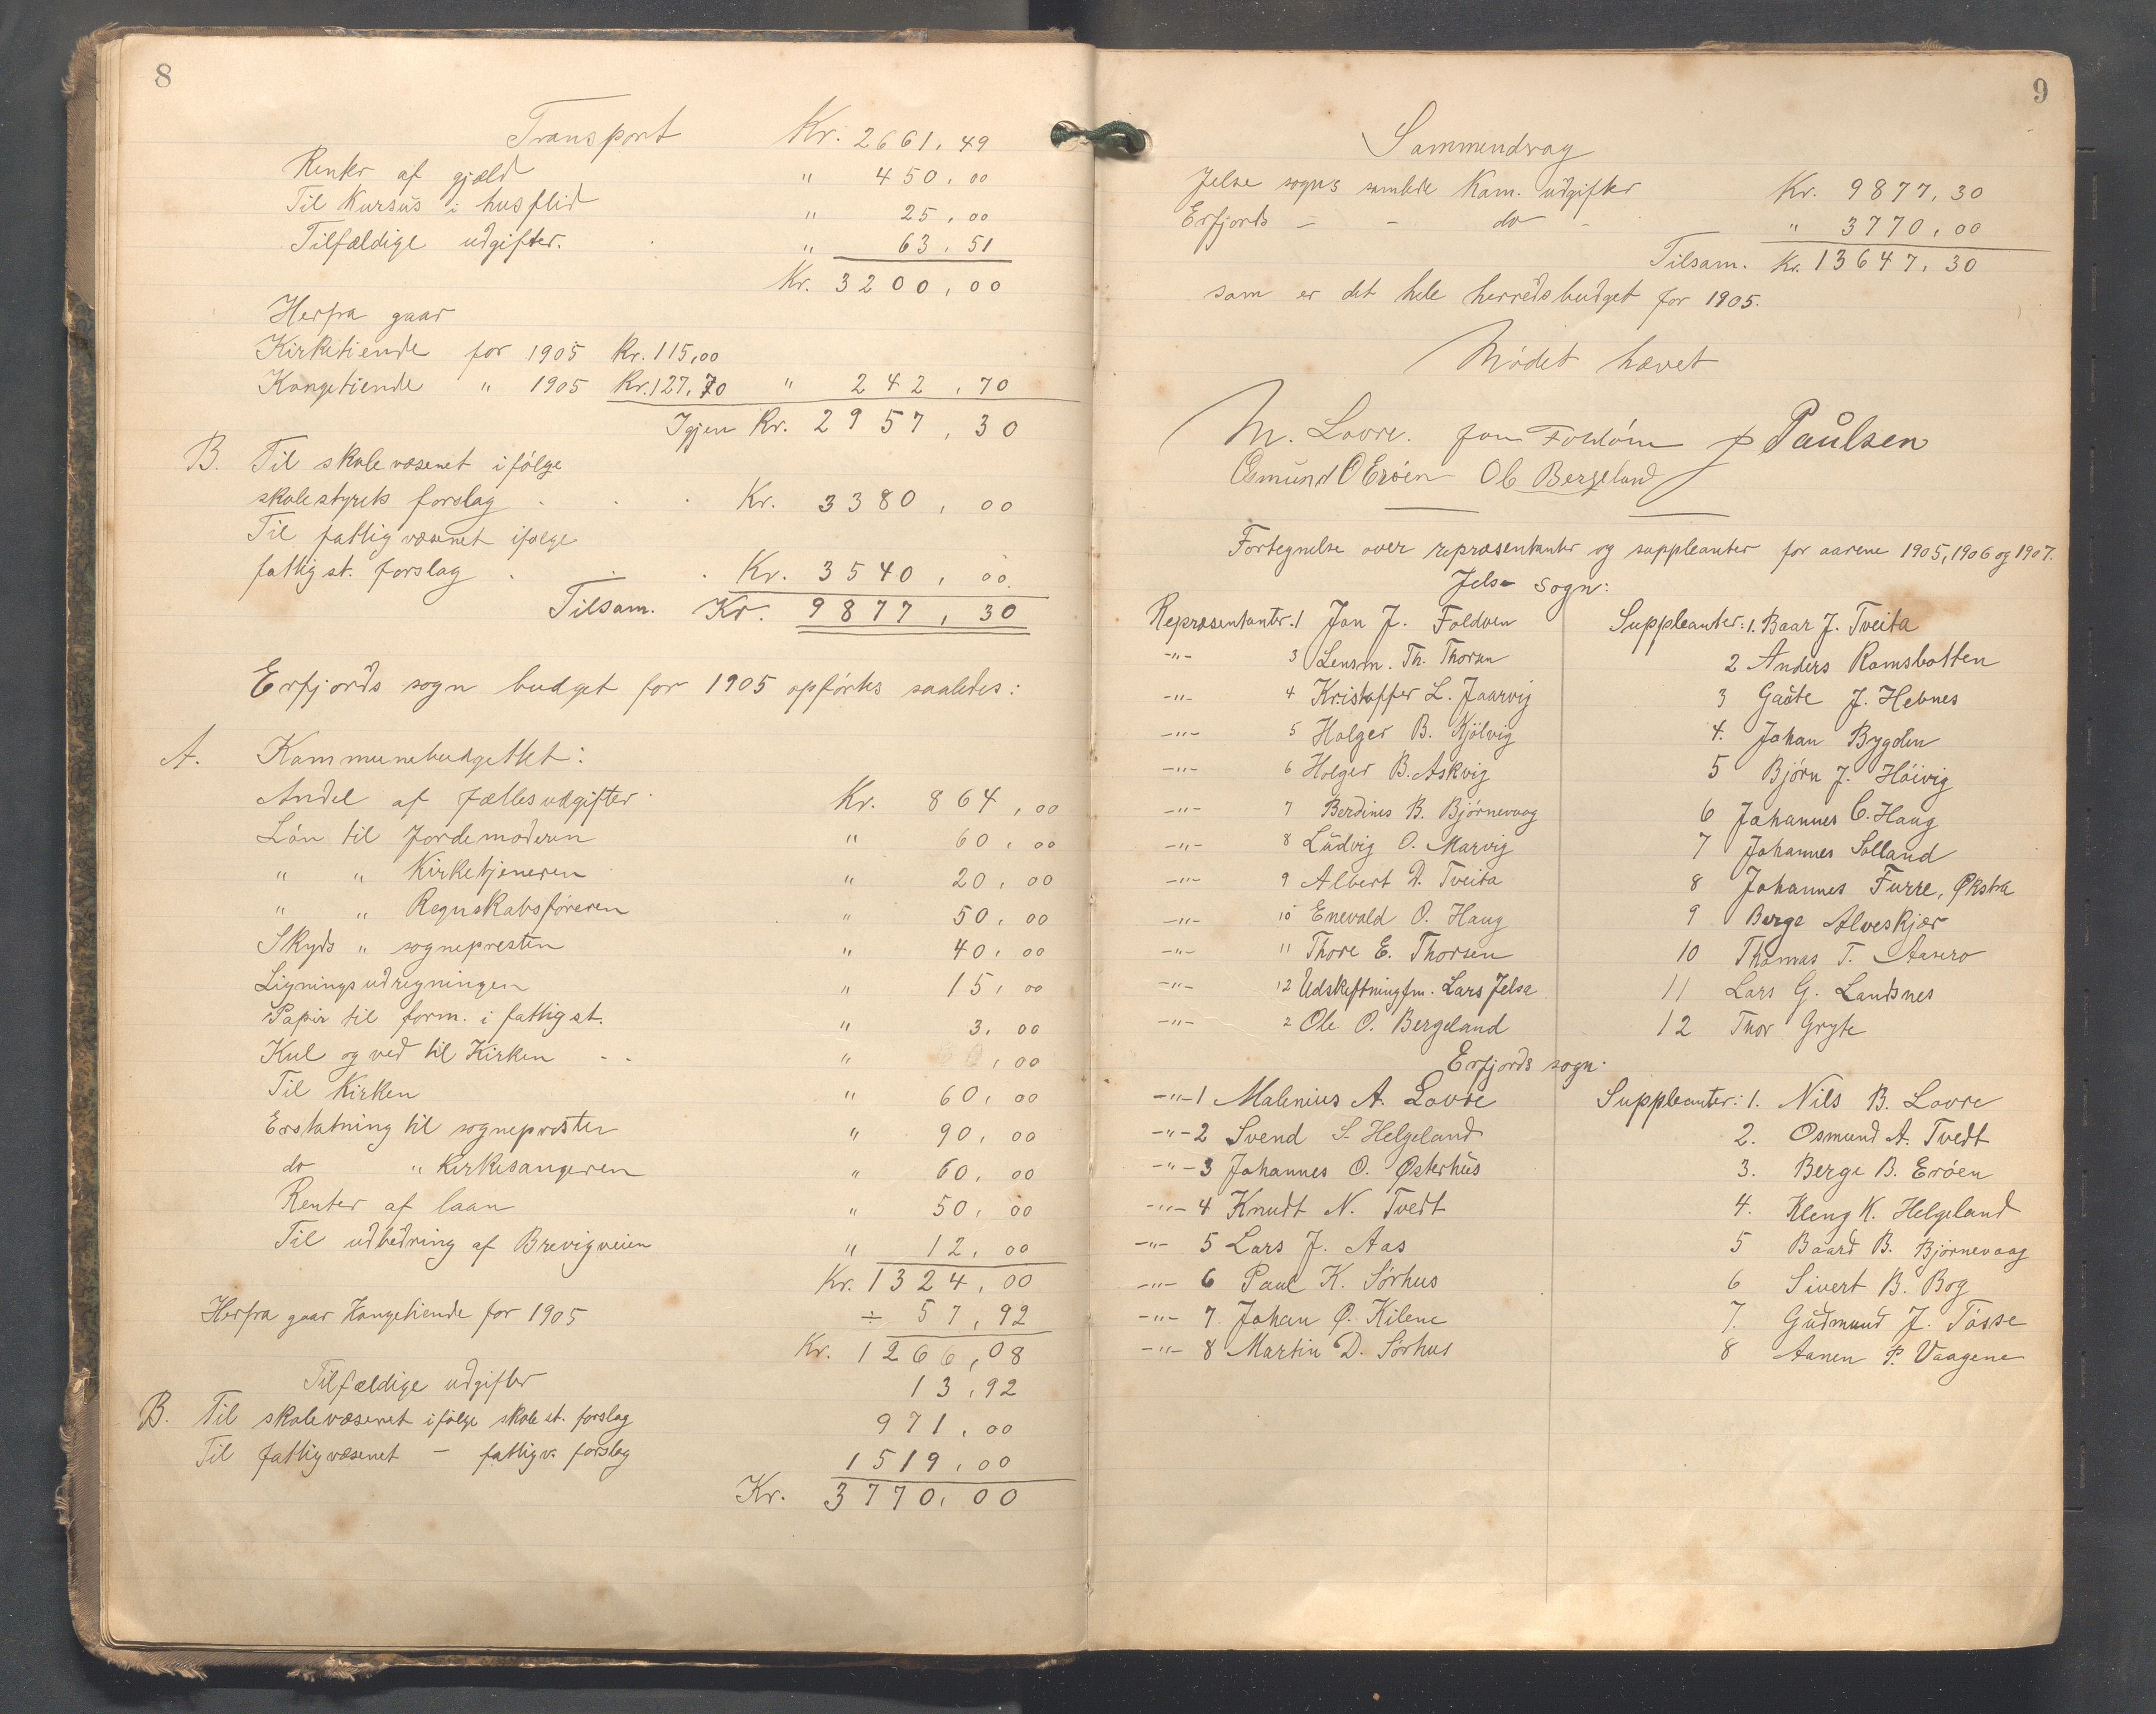 8
Transport Kr. 2661,49
Renter af gjæld " 450,00
Til Kursus i husflid " 25,00
Tilfældige udgifter. " 63,51
Kr. 3200,00
Herfra gaar
Kirketiende for 1905 Kr. 115,00
Kongetiende " 1905 Kr. 127,70 " 242,70
Igjen Kr. 2957,30
B. Til skolevæsenet ifölge
skolestyrets forslag . . . Kr. 3380,00
Til fattigvæsenet ifölge
fattigst. forslag . . . Kr. 3540,00
Tilsam. Kr. 9877,30
Erfjords sogn budget for 1905 opførtes saaledes:
A. Kommunebudgettet:
Andel af fællesudgifter Kr. 864,00
Lön til Jordemoderen " 60,00
" " Kirketjeneren " 20,00
" " Regnskabsføreren " 50,00
Skyds " sognepresten " 40,00
Ligningsudregningen " 15,00
Papir til form. i fattigst. " 3,00
Kul og ved til Kirken - - " ,00
Til Kirken " 60,00
Erstatning til sognepresten " 90,00
do " Kirkesangeren " 60,00
Renter af laan " 50,00
Til udbedring af Brevigveien " 12,00
Kr. 1324,00
Herfra gaar Kongetiende for 1905 ÷ 57,92
Kr. 1266,08
Tilfældige udgifter 13,92
B. Til skolevæsenet ifölge skolest. forslag 971,00
Til fattigvæsenet - fattigv. forslag 1519,00
Kr. 3770,00
9
Sammendrag
Jelse sogns samlede Kom. udgifter Kr. 9877,30
Erfjords - - do - " 3770,00
Tilsam. Kr. 13647,30
som er det hele herredsbudget for 1905.
Mødet hævet
M. Lovre. Jon Foldöin P Paulsen
Osmund O Eröen Ol Bergeland
Fortegnelse over repræsentanter og suppleanter for aarene 1905, 1906 og 1907.
Jelse sogn:
Repræsentanter. 1 Jon J. Foldoen Suppleanter: 1. Baar J. Tveita
-"- 3 Lensm. Th. Thorsen 2 Anders Ramsbotten
-"- 4 Kristoffer L. Jaarvig 3 Gaute J. Hebnes
-"- 5 Holger B. Kjölvig 4. Johan Bygden
-"- 6 Holger B. Askvig 5 Bjørn J. Höivig
-"- 7 Berdines B. Bjørnevaag 6 Johannes C. Haug
-"- 8 Ludvig O. Marvig 7 Johannes Solland
-"- 9 Albert D. Tveita 8 Johannes Furre, Økstra
-"- 10 Enevald O. Haug 9 Berge Alveskjær
-"- 11 Thore E. Thorsen 10 Thomas T.
-"- 12 Udskiftningfm. Lars Jelsa 11 Lars G. Landsnes
-"- 2 Ole O. Bergeland 12 Thor Gryte
Erfjords sogn.
-"- 1 Malenius A. Lovre Suppleanter: 1. Nils B. Lovre
-"- 2 Svend S. Helgeland 2. Osmund A. Tvedt
-"- 3 Johannes O. Østerhus 3. Berge B. Eröen
-"- 4 Knudt N. Tvedt 4. Kleng K. Helgeland
-"- 5 Lars J. Aas 5 Baard B. Bjørnevaag
-"- 6 Paul K. Sørhus 6 Sivert B. Bog
-"- 7. Johan Ø. Kilene 7. Gudmund J. Tösse
-"- 8 Martin D. Sørhus 8 Aanen P. Vaagene